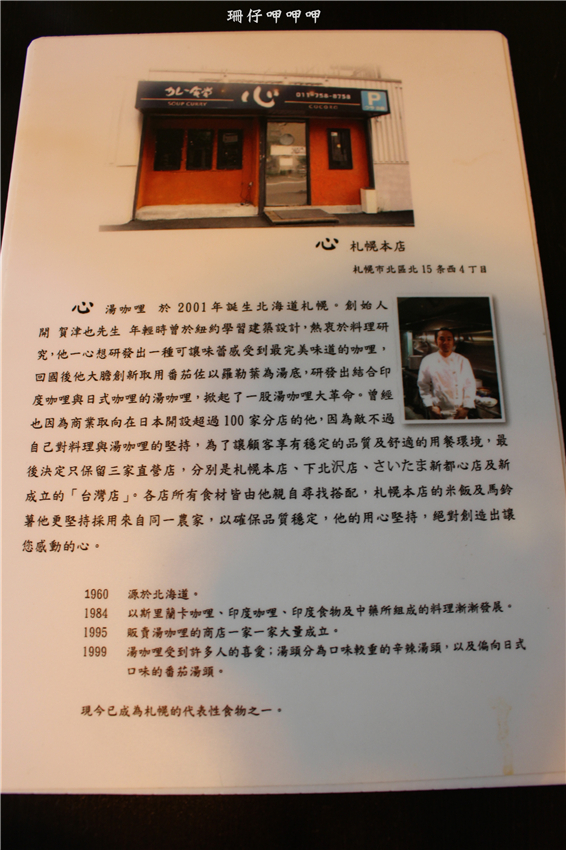 珊仔呷呷呷
カレー食堂 心 011-758-8758
SOUP CURRY COCORO P
心 札幌本店
札幌市北區北15条西4丁目
心 湯咖哩 於2001年誕生北海道札幌。創始人
開 賀津也先生 年輕時曾於紐約學習建築設計,熱衷於料理研
究,他一心想研發出一種可讓味蕾感受到最完美味道的咖哩,
回國後他大膽創新取用番茄佐以羅勒葉為湯底,研發出結合印
度咖哩與日式咖哩的湯咖哩,掀起了一股湯咖哩大革命。曾經
也因為商業取向在日本開設超過100家分店的他,因為敵不過
自己對料理與湯咖哩的堅持,為了讓顧客享有穩定的品質及舒適的用餐環境,最
後決定只保留三家直營店,分別是札幌本店、下北沢店、さいたま新都心店及新
成立的「台灣店」。各店所有食材皆由他親自尋找搭配,札幌本店的米飯及馬鈴
薯他更堅持採用來自同一農家,以確保品質穩定,他的用心堅持,絕對創造出讓
您感動的心。
1960 源於北海道。
1984 以斯里蘭卡咖哩、印度咖哩、印度食物及中藥所組成的料理漸漸發展。
1995 販賣湯咖哩的商店一家一家大量成立。
1999 湯咖哩受到許多人的喜愛;湯頭分為口味較重的辛辣湯頭,以及偏向日式
口味的番茄湯頭。
現今已成為札幌的代表性食物之一。